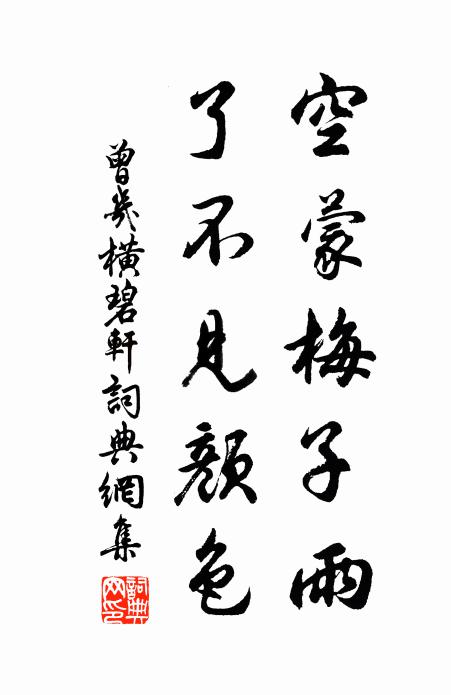 空蒙梅子雨
了不見顏色
曾幾橫碧軒詞典網集
詞典網印